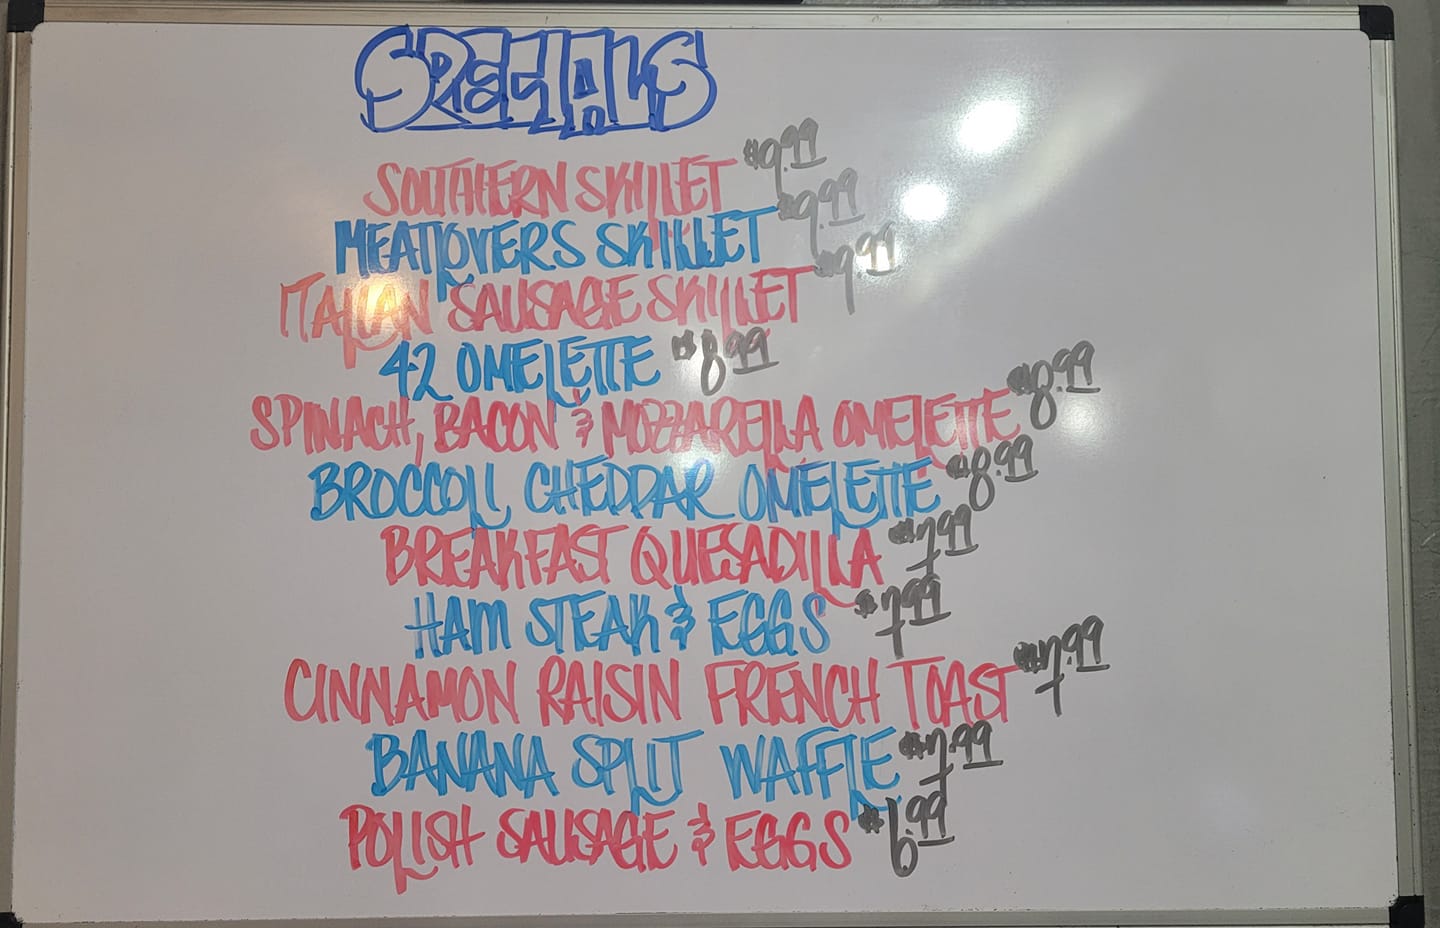 SPECIALS
SOUTHERN SKILLET $9.99
MEATLOVERS SKILLET $9.99
ITALIAN SAUSAGE SKILLET $9.99
42 OMELETTE $8.99
SPINACH, BACON & MOZZARELLA OMELETTE $8.99
BROCCOLI CHEDDAR OMELETTE $8.99
BREAKFAST QUESADILLA $7.99
HAM STEAK & EGGS $7.99
CINNAMON RAISIN FRENCH TOAST $7.99
BANANA SPLIT WAFFLE $7.99
POLISH SAUSAGE & EGGS $6.99